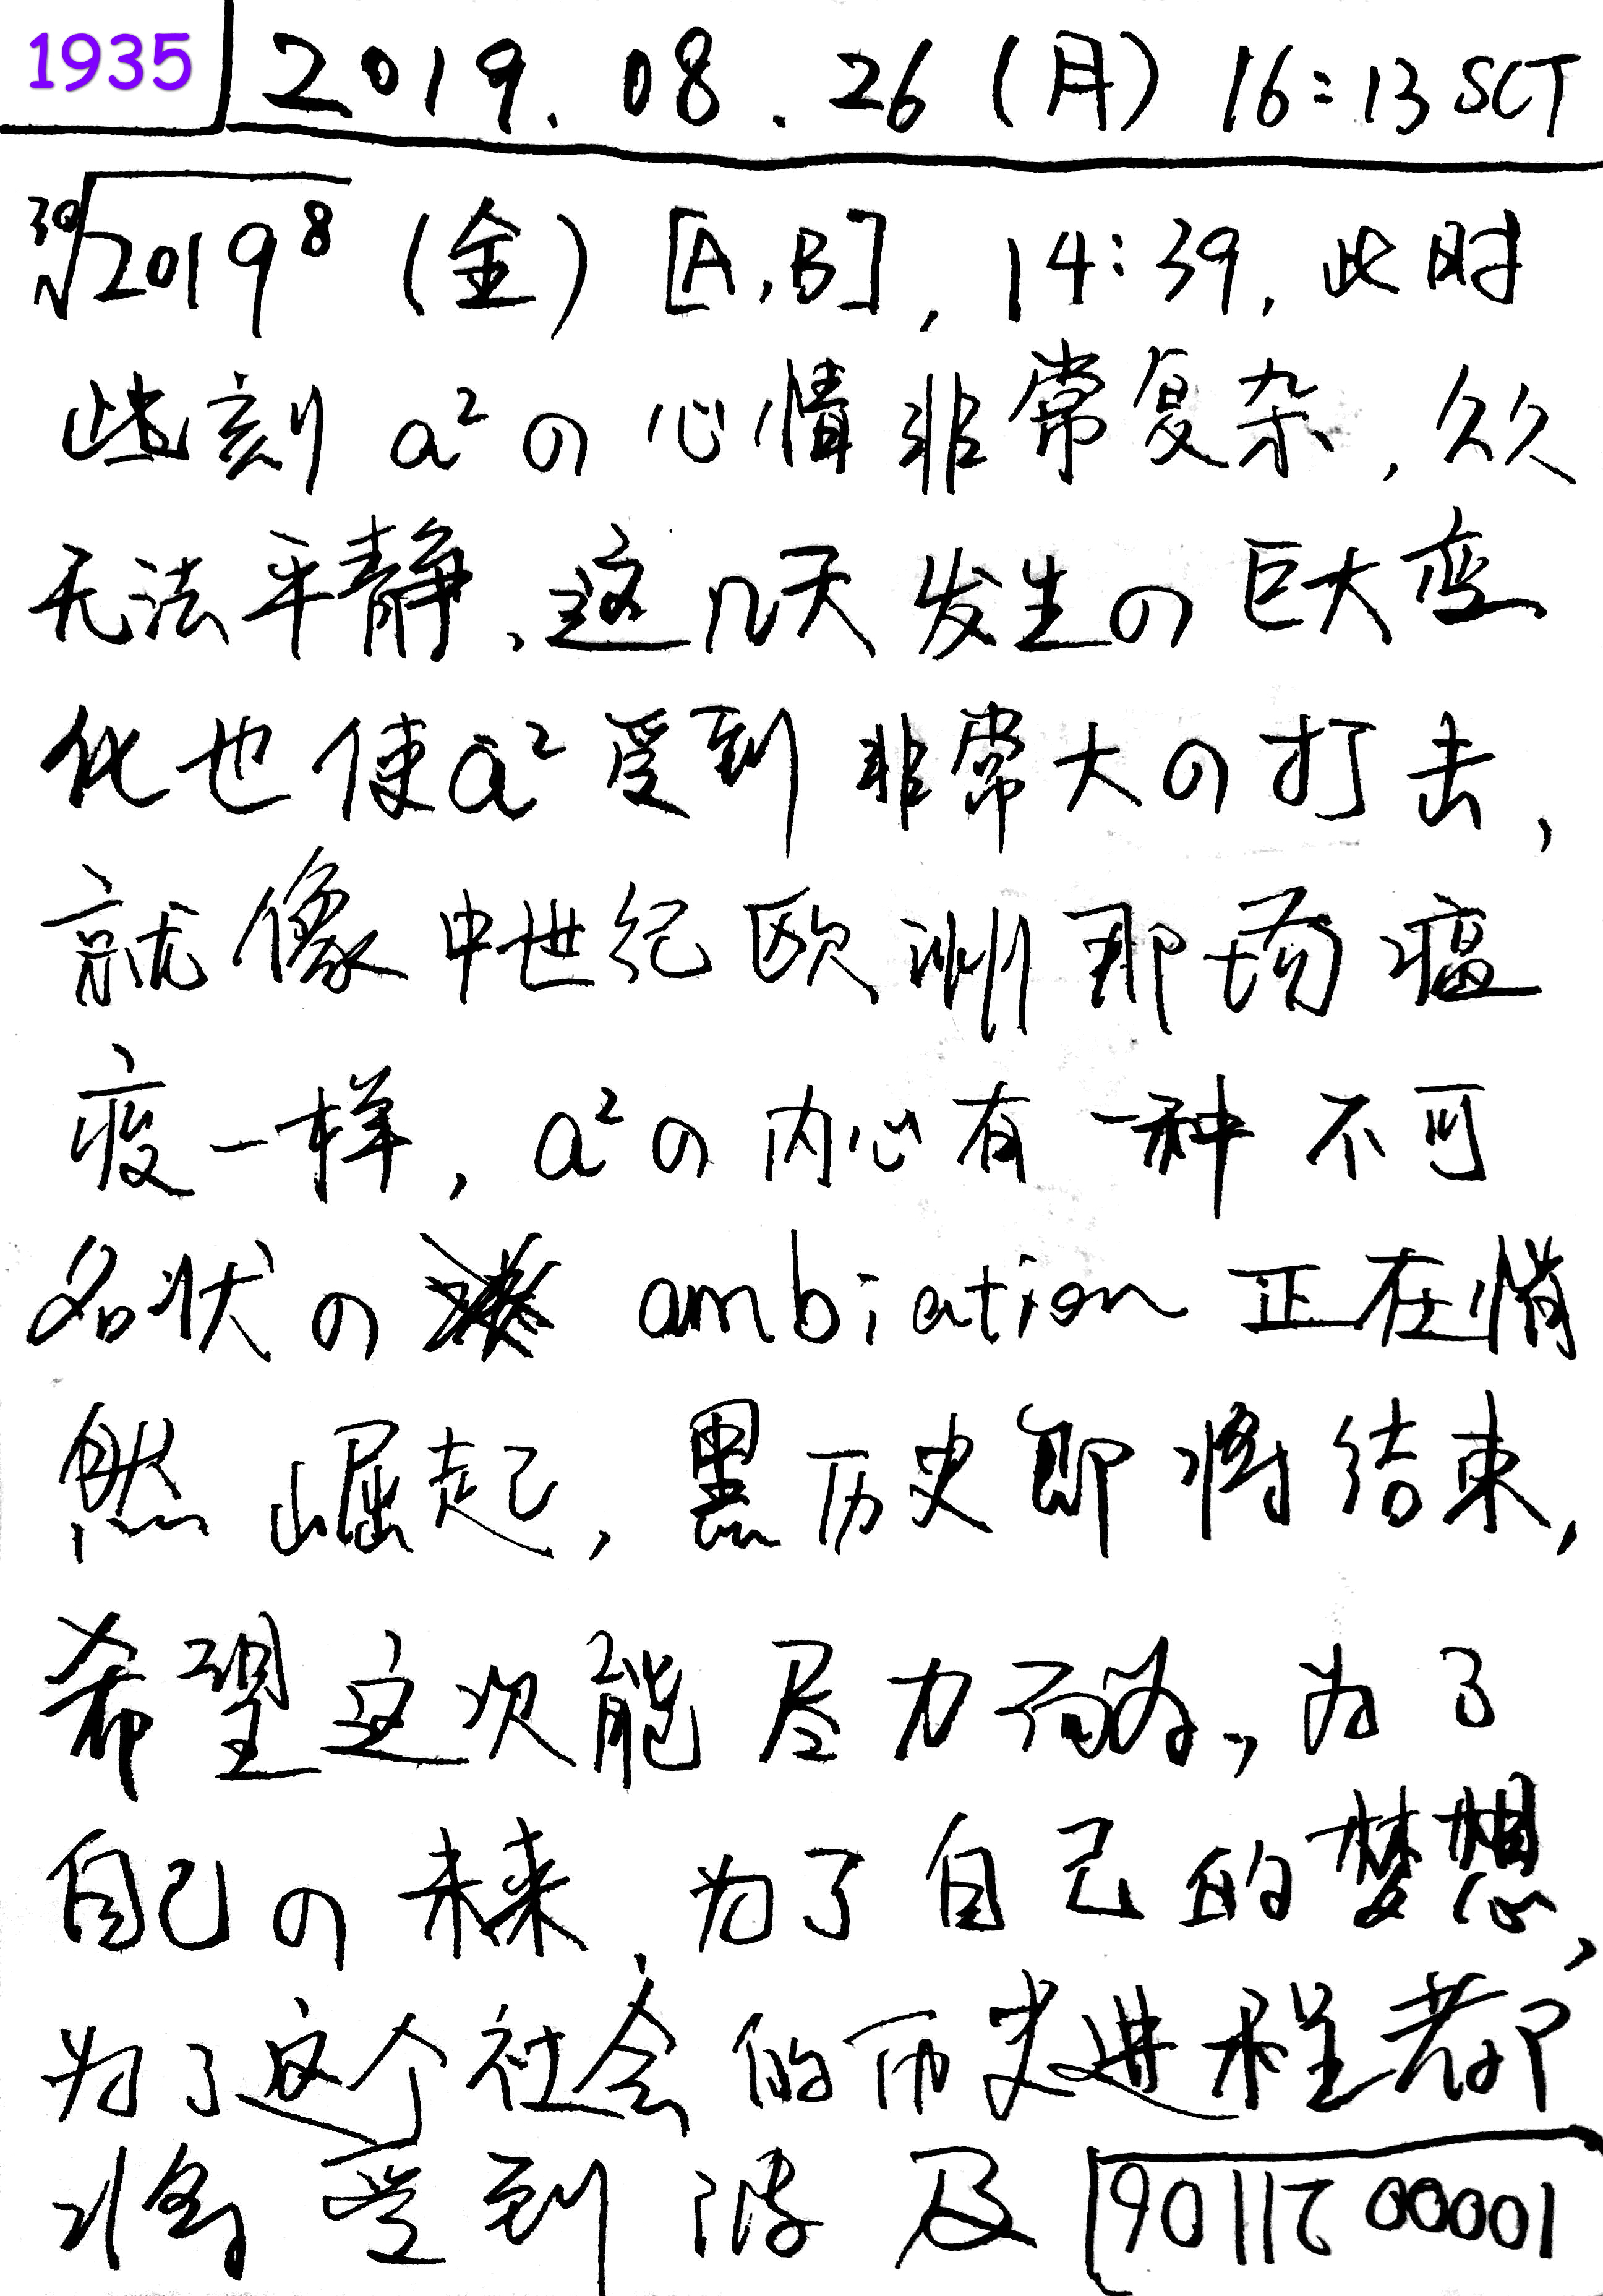 1935 2019.08.26(月) 16:13 SCT
³⁰√2019⁸ (金) [A,B], 14:39, 此时
此刻 a²の心情非常复杂,久久
无法平静、这几天发生の巨大变
化也使a²受到非常大の打击,
就像中世纪欧洲那场瘟
疫一样, a²の内心有一种不可
名状の ambiation 正在悄
然崛起, 黑历史即将结束,
希望这次能尽力而为,为了
自己の未来、为了自己的梦想,
为了这个社会的历史进程都
将受到波及